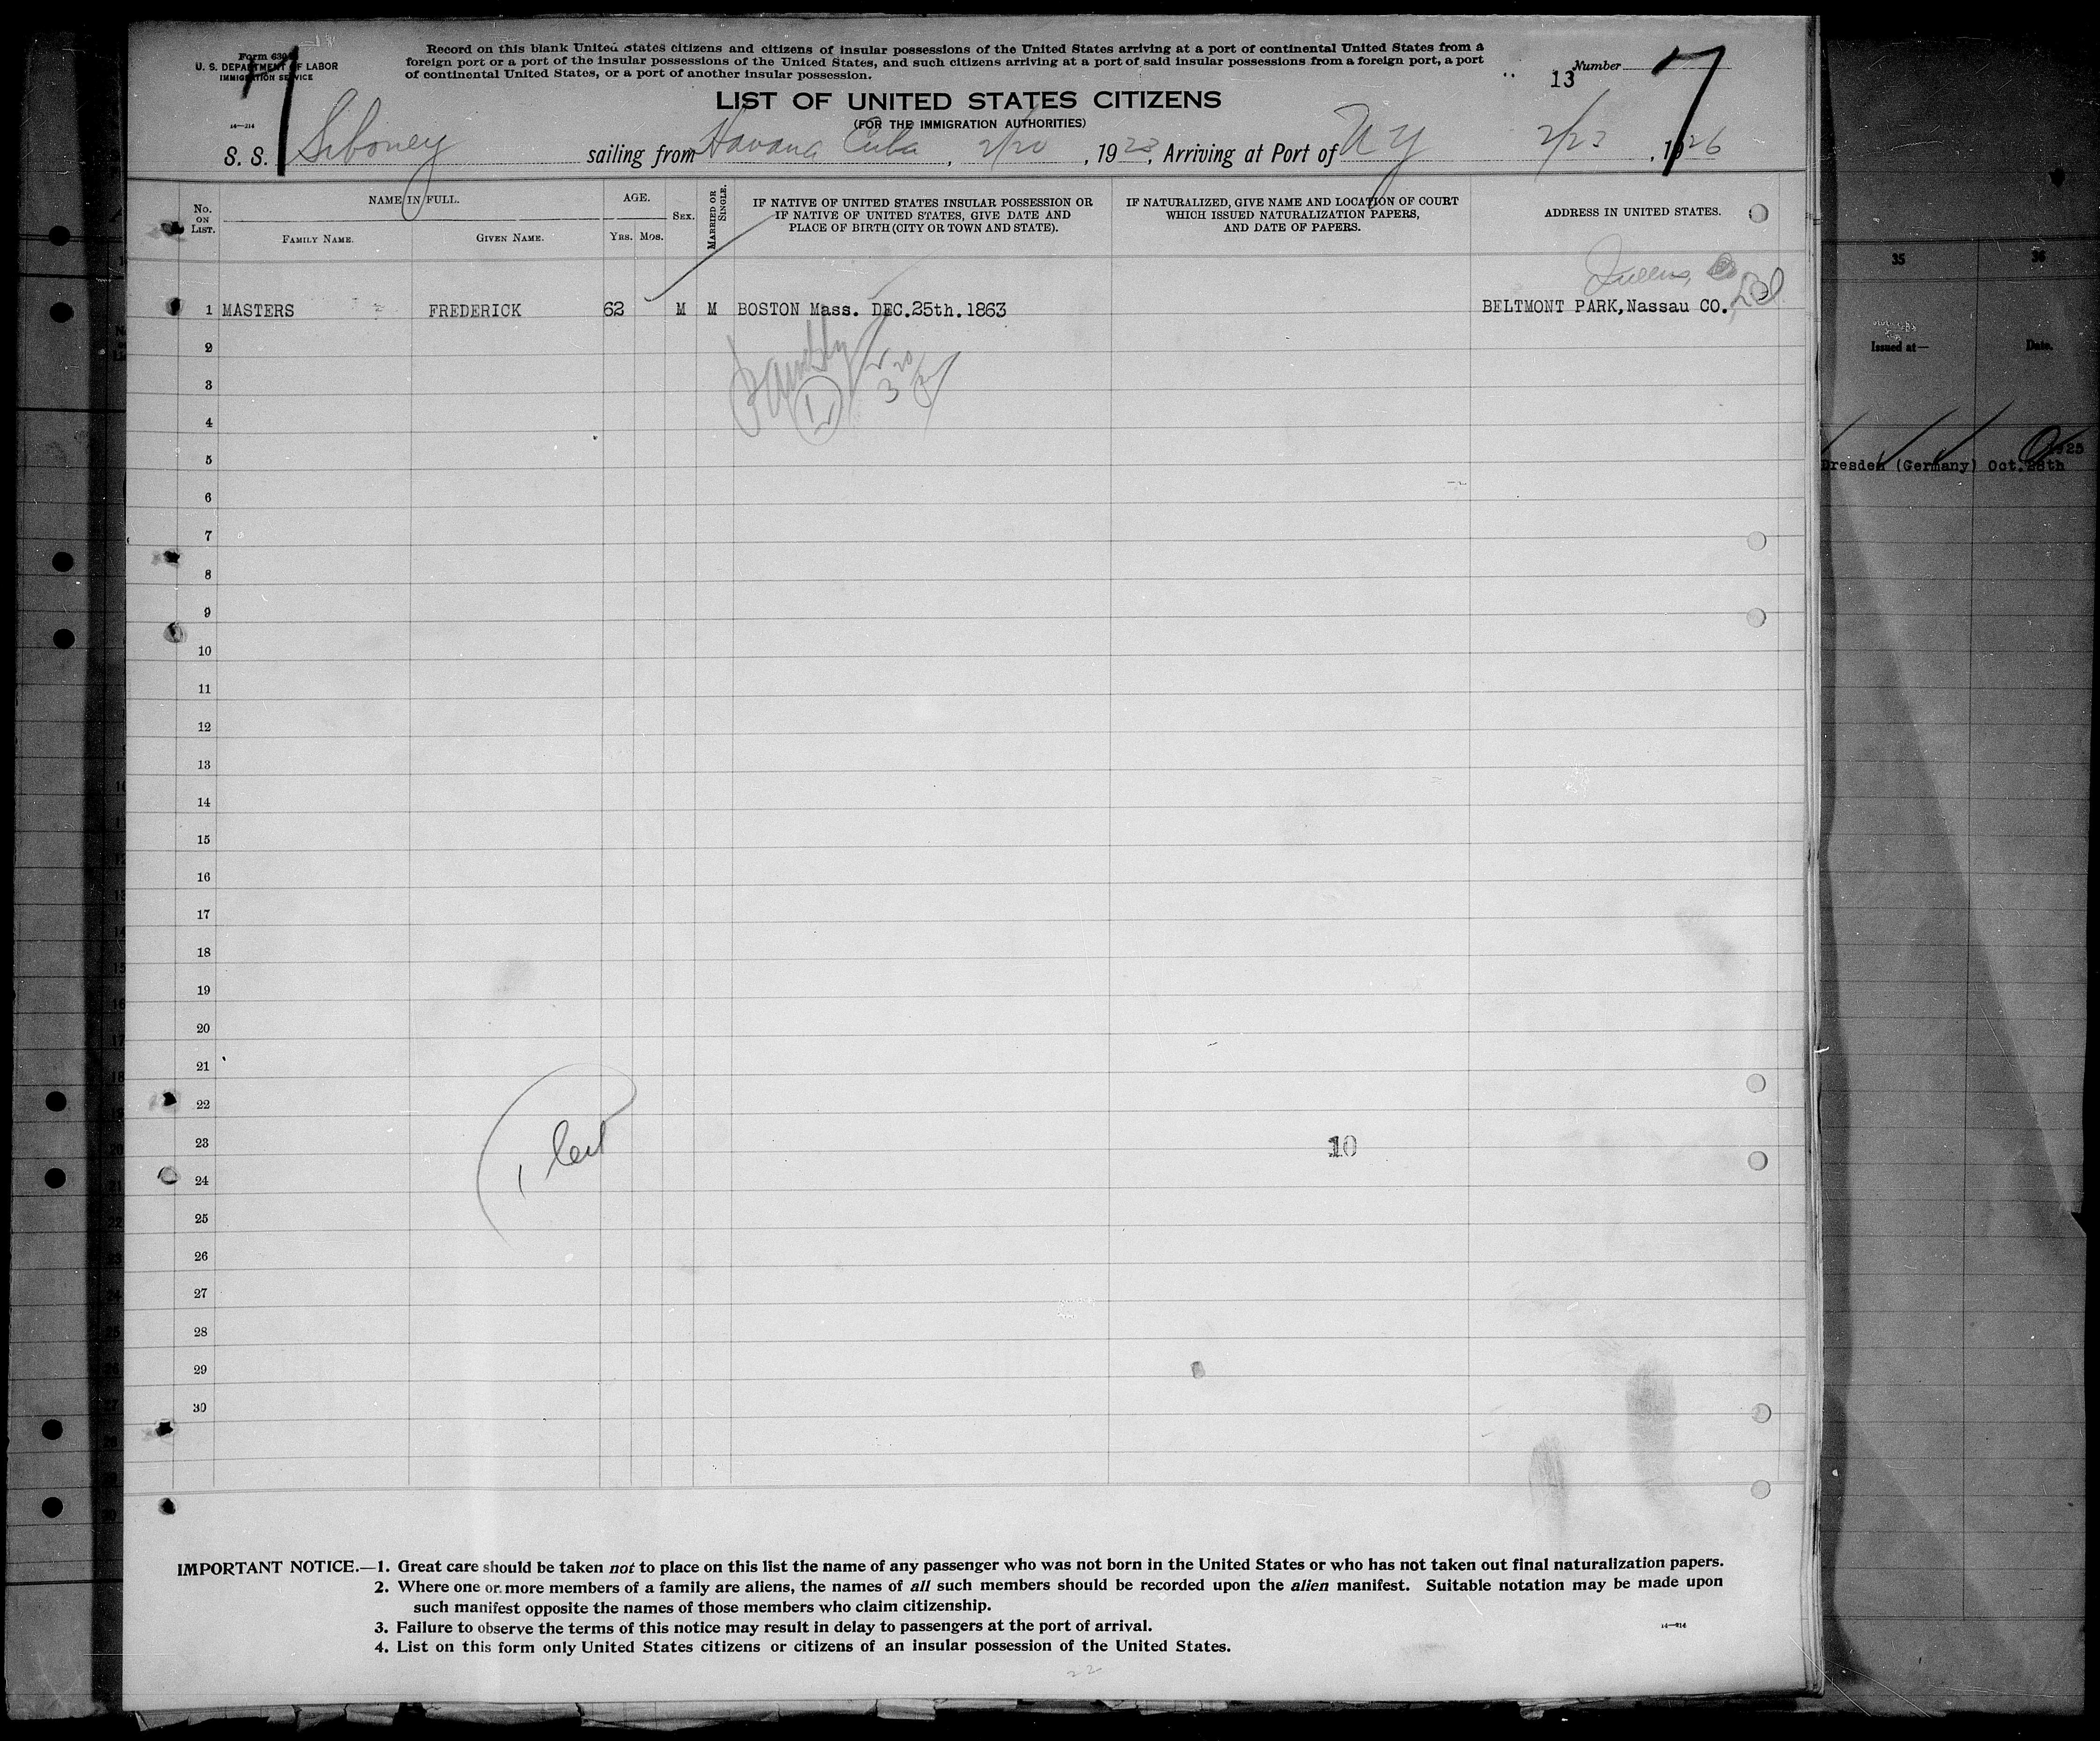 Form 630
U. S. DEPARTMENT OF LABOR
IMMIGRATION SERVICE
Record on this blank United States citizens and citizens of insular possessions of the United States arriving at a port of continental United States from a
foreign port or a port of the insular possessions of the United States, and such citizens arriving at a port of said insular possessions from a foreign port, a port
of continental United States, or a port of another insular possession.
13 Number 7
LIST OF UNITED STATES CITIZENS
(FOR THE IMMIGRATION AUTHORITIES)
S. S. Siboney sailing from Havana Cuba, 2/20, 1923, Arriving at Port of N Y 2/23, 1926
No. ON LIST.
NAME IN FULL.
FAMILY NAME.
GIVEN NAME.
AGE.
YRS. MOS.
SEX.
MARRIED OR SINGLE.
IF NATIVE OF UNITED STATES INSULAR POSSESSION OR
IF NATIVE OF UNITED STATES, GIVE DATE AND
PLACE OF BIRTH (CITY OR TOWN AND STATE).
IF NATURALIZED, GIVE NAME AND LOCATION OF COURT
WHICH ISSUED NATURALIZATION PAPERS,
AND DATE OF PAPERS.
ADDRESS IN UNITED STATES.
Queens,
1 MASTERS FREDERICK 62 M M BOSTON Mass. DEC.25th.1863 BELTMONT PARK,Nassau CO.
2
3
4
5
6
7
8
9
10
11
12
13
14
15
16
17
18
19
20
21
22
23 10
24
25
26
27
28
29
30
IMPORTANT NOTICE.—1. Great care should be taken not to place on this list the name of any passenger who was not born in the United States or who has not taken out final naturalization papers.
2. Where one or more members of a family are aliens, the names of all such members should be recorded upon the alien manifest. Suitable notation may be made upon
such manifest opposite the names of those members who claim citizenship.
3. Failure to observe the terms of this notice may result in delay to passengers at the port of arrival.
4. List on this form only United States citizens or citizens of an insular possession of the United States.
22
35
36
Issued at—
Date.
1925
Dresden (Germany) Oct.28th